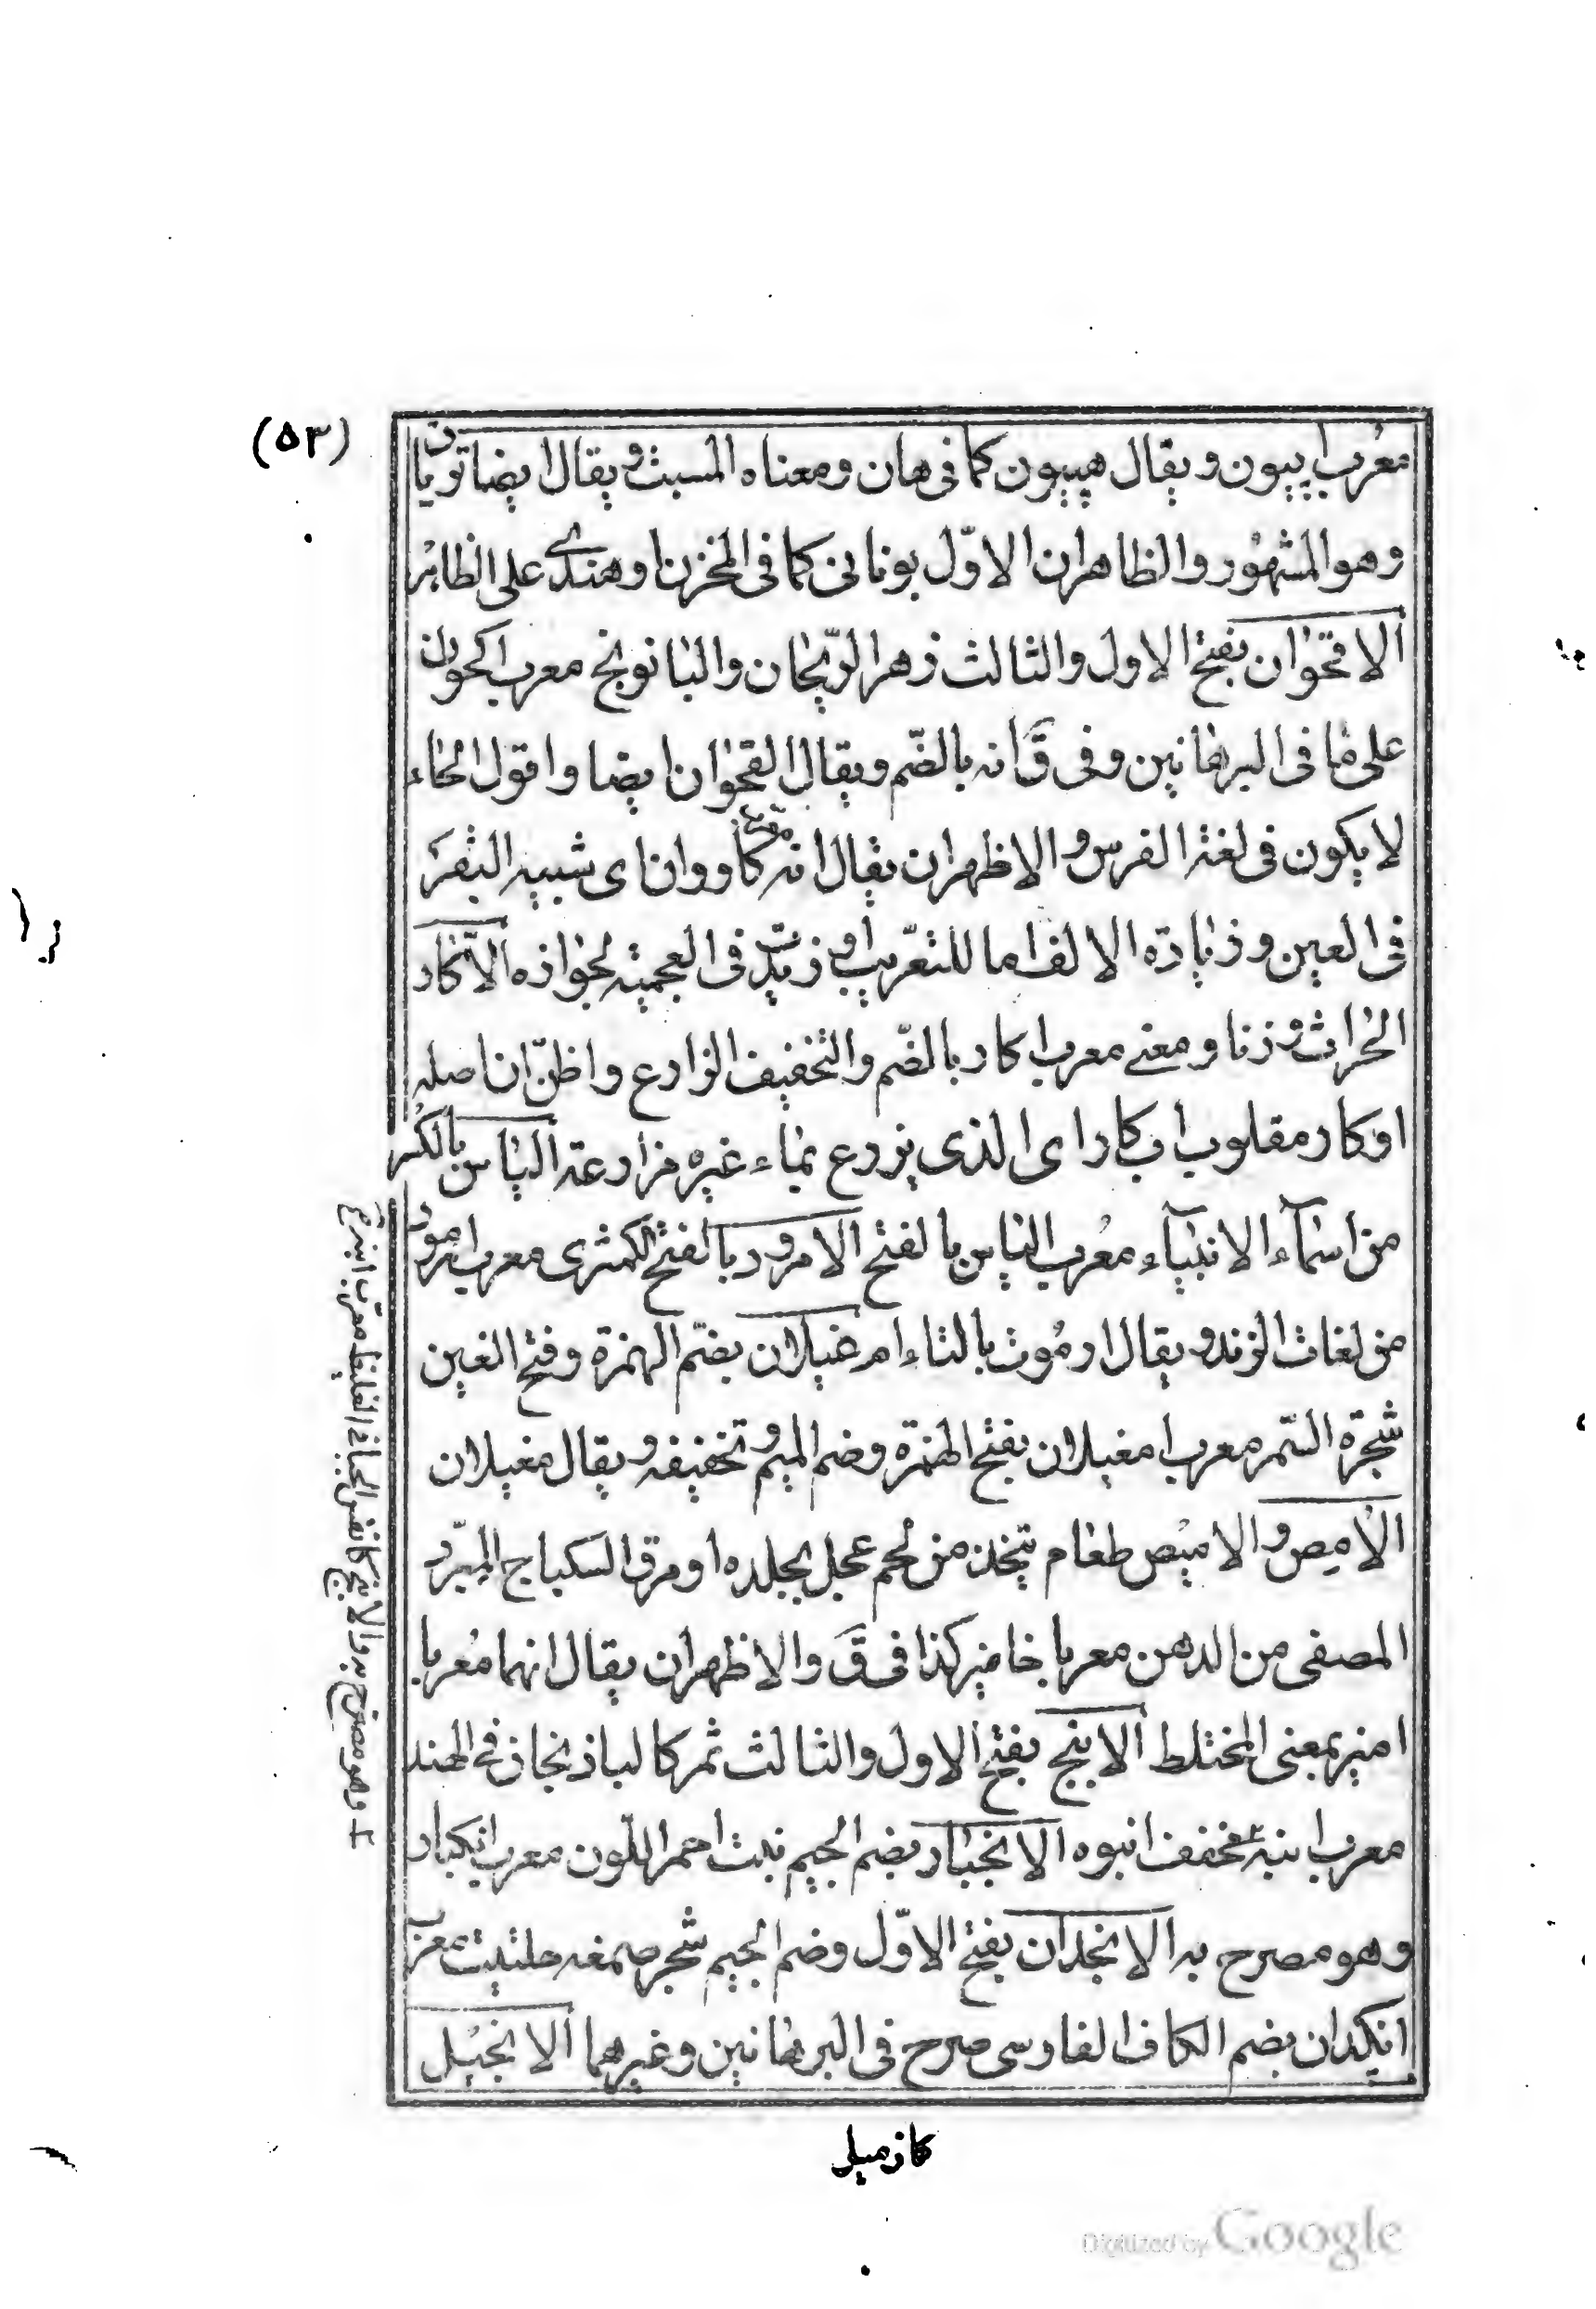 (۵۳)
معرب اپیون ويقال هپیون كما فى هان ومعناه المسبت ويقال ايضا تریاق
وهو المشهور والظاهر ان الاوّل يونانى كما فى المخزن او هندى على الظاهر
الاقحوان بفتح الاول والثالث زهر الريحان والبابونج معرب اكحوان
على ما فى البرهانين وفى ق انه بالضّم ويقال القحوان ايضا واقول الحاء
لا يكون فى لغة الفرس والاظهر ان يقال انه معرب كاووان اى شبيه البقر
فى العين وزيادة الالف اما للتعريب او زيدت فى العجمية لجوازه الاكّار
الحراث وزنا ومعنى معرب اكار بالضّم والتخفيف الزارع واظنّ ان اصله
اوكار مقلوب ابكار اى الذى يزرع بماء غيره مزارعة الياس بالكسر
من اسماء الانبياء معرب الياس بالفتح الامرود بالفتح الكمثرى معرب ارمود
من لغات الزند ويقال ارموت بالتاء ام غيلان بضّم الهمزة وفتح الغين
شجرة السّمر معرب امغيلان بفتح الهمزة وضم الميم وتخفيفه ويقال مغيلان
الامص والاميص طعام يتخذ من لحم عجل بجلده او مرق السكباج المبرّد
المصفى من الدهن معربا خاميز كذا فى ق والاظهر ان يقال انهما معربا
اميز بمعنى المختلط الانبج بفتح الاول والثالث ثمر كالباذنجان فى الهند
معرب انبه مخفف انبوه الانجبار بضم الجيم نبت احمر اللّون معرب انكبار
وهو مصرح به الانجدان بفتح الاوّل وضم الجيم شجر صمغه حلتيت معرب
انكدان بضم الكاف الفارسى صرح فى البرهانين وغيرهما الانجيل
كازميل
وهو مصرح به الانج كانفس الجاف الغليظ معرب